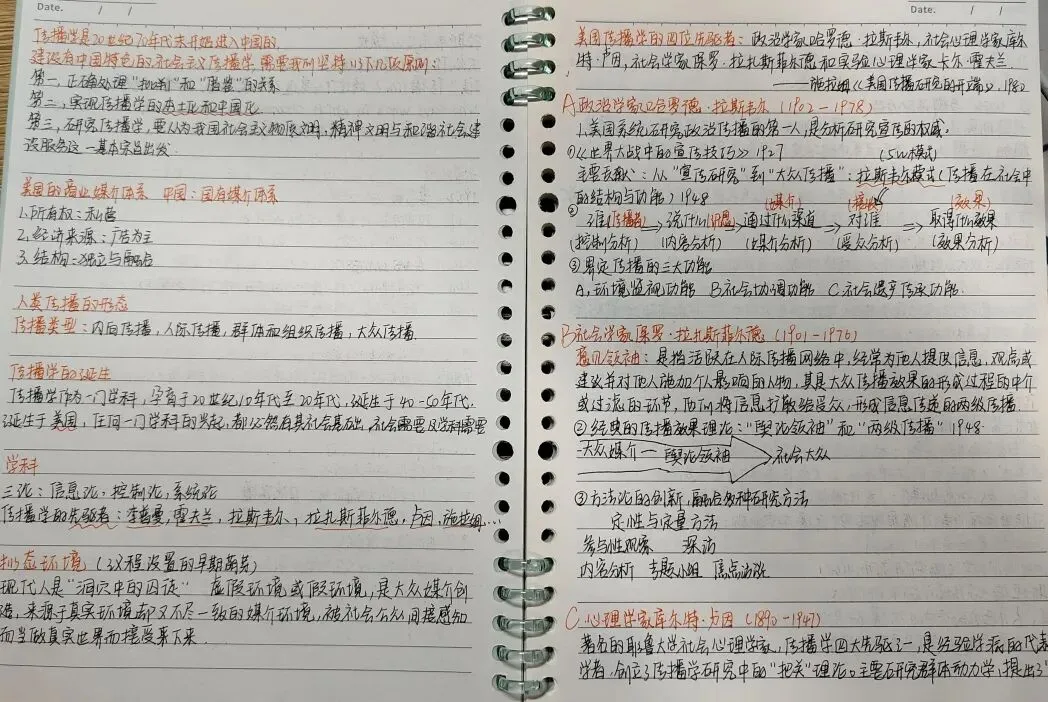 Date. / /
传播学是20世纪70年代末开始进入中国的.
建设有中国特色的社会主义传播学,需要我们坚持以下几项原则:
第一,正确处理"批判"和"借鉴"的关系
第二,实现传播学的本土化和中国化
第三,研究传播学,要从为我国社会主义物质文明,精神文明与和谐社会建
设服务这一基本宗旨出发.
美国的商业媒介体系 中国:国有媒介体系
1.所有权:私营
2.经济来源:广告为主
3.结构:独立与融合
人类传播的形态
传播类型:内向传播,人际传播,群体和组织传播,大众传播.
传播学的诞生
传播学作为一门学科,孕育于20世纪10年代至20年代,诞生于40-50年代.
诞生于美国,任何一门学科的兴起,都必然有其社会基础,社会需要及学科需要
学科
三论:信息论,控制论,系统论
传播学的先驱者:李普曼,霍夫兰,拉斯韦尔、,拉扎斯菲尔德,卢因,施拉姆…
拟态环境(议程设置的早期萌芽)
现代人是"洞穴中的囚徒" 虚假环境或假环境,是大众媒介创
造,来源于真实环境却又不尽一致的媒介环境,被社会公众间接感知
而当做真实世界而接受下来.
Date. / /
美国传播学的四位先驱者:政治学家哈罗德·拉斯韦尔,社会心理学家库尔
特·卢因,社会学家保罗·拉扎斯菲尔德和实验心理学家卡尔·霍夫兰.
——施拉姆《美国传播研究的开端》,1982
A政治学家哈罗德·拉斯韦尔(1902-1978)
1.美国系统研究政治传播的第一人,是分析研究宣传的权威.
①《世界大战中的宣传技巧》1927 (5W模式)
主要贡献:从"宣传研究"到"大众传播":拉斯韦尔模式(传播在社会中
的结构与功能)1948 (媒介) (接收) (效果)
② 谁(传播者)→说什么(讯息)通过什么渠道→对谁⇒取得什么效果
(控制分析) (内容分析) (媒介分析) (受众分析) (效果分析)
③界定传播的三大功能
A.环境监视功能 B社会协调功能 C社会遗产传承功能.
B社会学家保罗·拉扎斯菲尔德(1901-1976)
意见领袖:是指活跃在人际传播网络中,经常为他人提供信息,观点或
建议并对他人施加个人影响的人物,其是大众传播效果的形成过程的中介
或过滤的环节,他们将信息扩散给受众,形成信息传递的两级传播.
②经典的传播效果理论:"舆论领袖"和"两级传播"1948.
大众媒介——舆论领袖→社会大众
③方法论的创新,融合多种研究方法
定性与定量方法
参与性观察 深访
内容分析 专题小组 焦点访谈
C.心理学家库尔特·卢因(1890-1947)
著名的耶鲁大学社会心理学家,传播学四大先驱之一,是经验学派的代表
学者,创立了传播学研究中的"把关"理论。主要研究群体动力学,提出了"